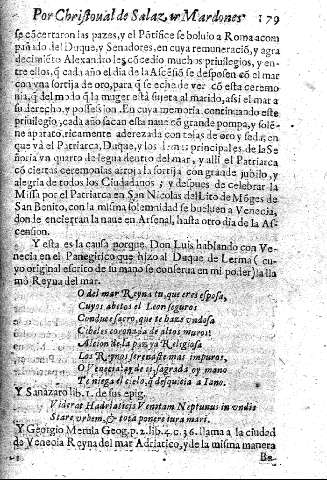 Por Christoual de Salaz. y Mardones 179
se cõcertaron las pazes, y el Põtifice se boluio a Roma acom
pañado del Duque, y Senadores, en cuya remuneració, y agra
decimiẽto Alexandro les cõcedio muchos priuilegios, y en-
tre ellos, q̃ cada año el dia de la Ascẽsiõ se desposen cõ el mar
con vna sortija de oro, para q̃ se eche de ver cõ esta ceremo
nia, q̃ del modo q̃ la muger està sujeta al marido, assi el mar a
su derecho, y possessiõ. En cuya memoria, continuando este
priuilegio, cada año sacan esta naue cõ grande pompa, y solẽ-
ne aparato, ricamente aderezada con telas de oro y seda, en
que và el Patriarca, Duque, y los principales de la Se
ñoria vn quarto de legua dentro del mar, y alli el Patriarca
cõ ciertas ceremonias arroja la sortija con grande jubilo, y
alegria de todos los Ciudadanos; y despues de celebrar la
Missa por el Patriarca en San Nicolas del Lito de Mõges de
San Benito, con la misma solemnidad se bueluen a Venecia,
donde encierran la naue en Arsenal, hasta otro dia de la As-
cension.
Y esta es la causa porque Don Luis hablando con Ve-
necia en el Panegirico que hizo al Duque de Lerma (cu
yo original escrito de su mano se conserua en mi poder) la lla
mò Reyna del mar.
O del mar Reyna tu, que eres esposa,
Cuyos abetos el Leon seguros
Conduce sacro, que te haze vndosa
Cibeles coronada de altos muros!
Alcion de la paz ya Religiosa
Los Reynos serenaste mas impuros,
O Venecia, ay de ti, sagrada oy mano
Te niega el cielo, q̃ desquicia a Iano.
Y Sanazaro lib. 1. de sus epig.
Viderat Hadriaticis Venetam Neptunus in vndis
Stare vrbem, & toto ponere iura mari.
Y Georgio Merula Geog. p. 2. lib. 4. c. 36. llama a la ciudad
de Venecia Reyna del mar Adriatico, y de la misma manera